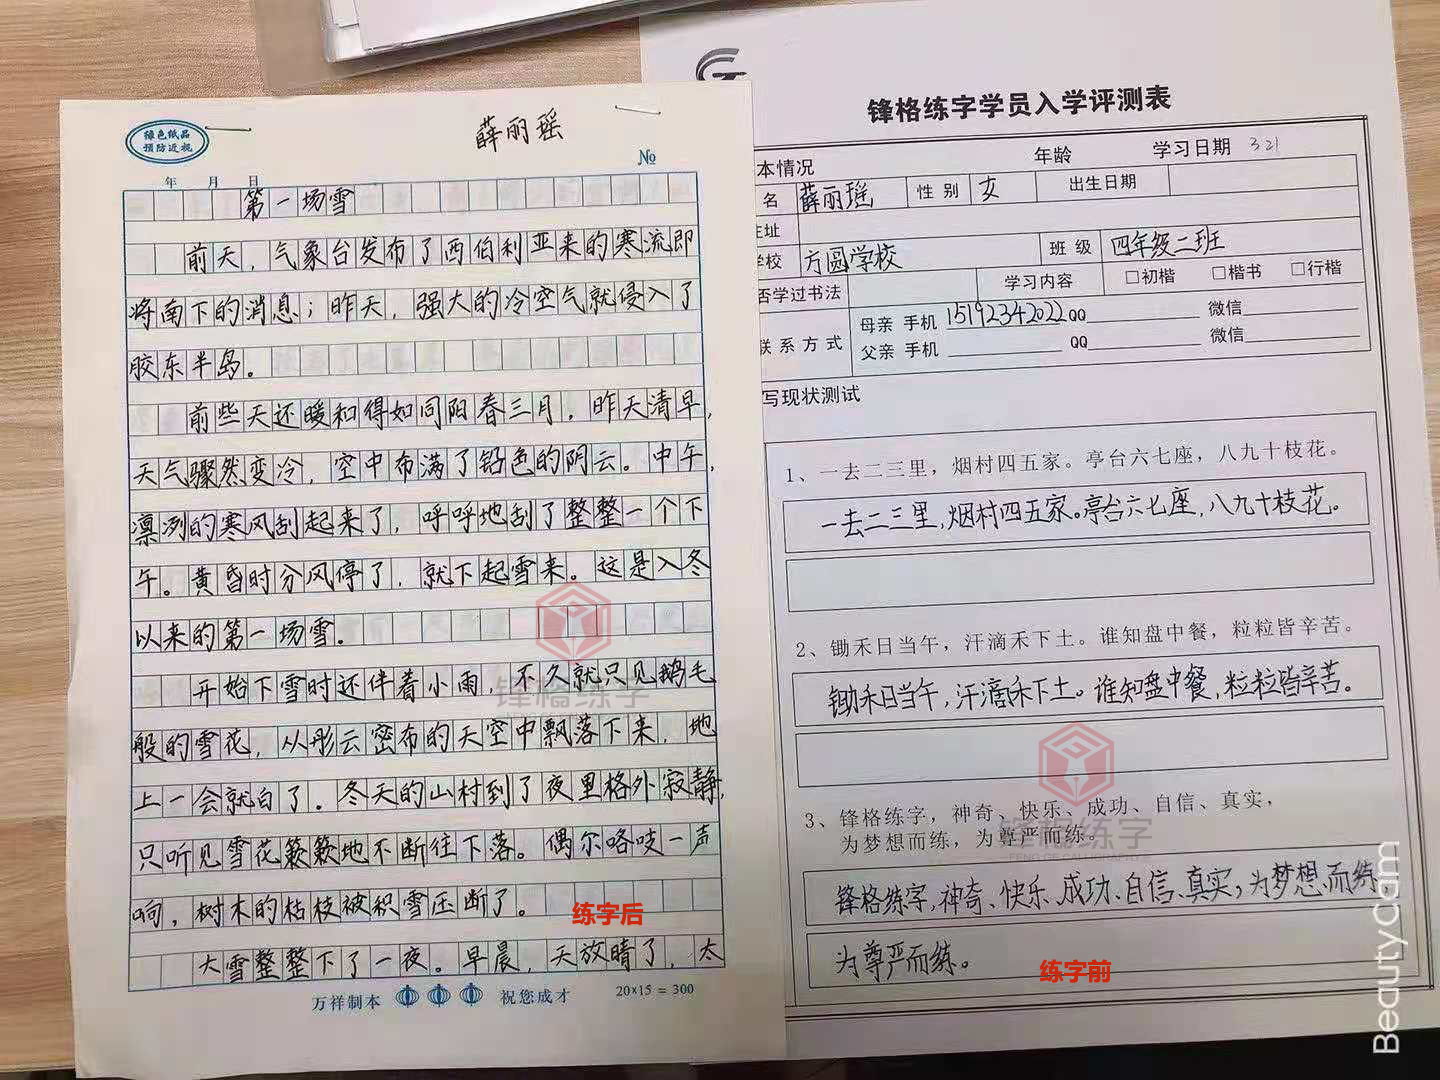 绿色纸品
预防近视
薛丽瑶
№
年 月 日
第一场雪
前天，气象台发布了西伯利亚来的寒流即
将南下的消息；昨天，强大的冷空气就侵入了
胶东半岛。
前些天还暖和得如同阳春三月，昨天清早，
天气骤然变冷，空中布满了铅色的阴云。中午，
凛冽的寒风刮起来了，呼呼地刮了整整一个下
午。黄昏时分风停了，就下起雪来。这是入冬
以来的第一场雪。
开始下雪时还伴着小雨，不久就只见鹅毛
般的雪花，从彤云密布的天空中飘落下来，地
上一会就白了。冬天的山村到了夜里格外寂静，
只听见雪花簌簌地不断往下落。偶尔咯吱一声
响，树木的枯枝被积雪压断了。
大雪整整下了一夜。早晨，天放晴了，太
练字后
锋格练字
万祥制本 祝您成才 20×15 = 300
锋格练字学员入学评测表
本情况 年龄 学习日期 3 21
名 薛丽瑶 性别 女 出生日期
住址
学校 方圆学校 班级 四年级二班
否学过书法 学习内容 □初楷 □楷书 □行楷
联系方式 母亲 手机 15192342022 QQ 微信
父亲 手机 QQ 微信
写现状测试
1、一去二三里，烟村四五家。亭台六七座，八九十枝花。
一去二三里，烟村四五家。亭台六七座，八九十枝花。
2、锄禾日当午，汗滴禾下土。谁知盘中餐，粒粒皆辛苦。
锄禾日当午，汗滴禾下土。谁知盘中餐，粒粒皆辛苦。
3、锋格练字，神奇、快乐、成功、自信、真实，
为梦想而练，为尊严而练。
锋格练字
锋格练字，神奇、快乐、成功、自信、真实，为梦想而练
为尊严而练。
练字前
BeautyCam